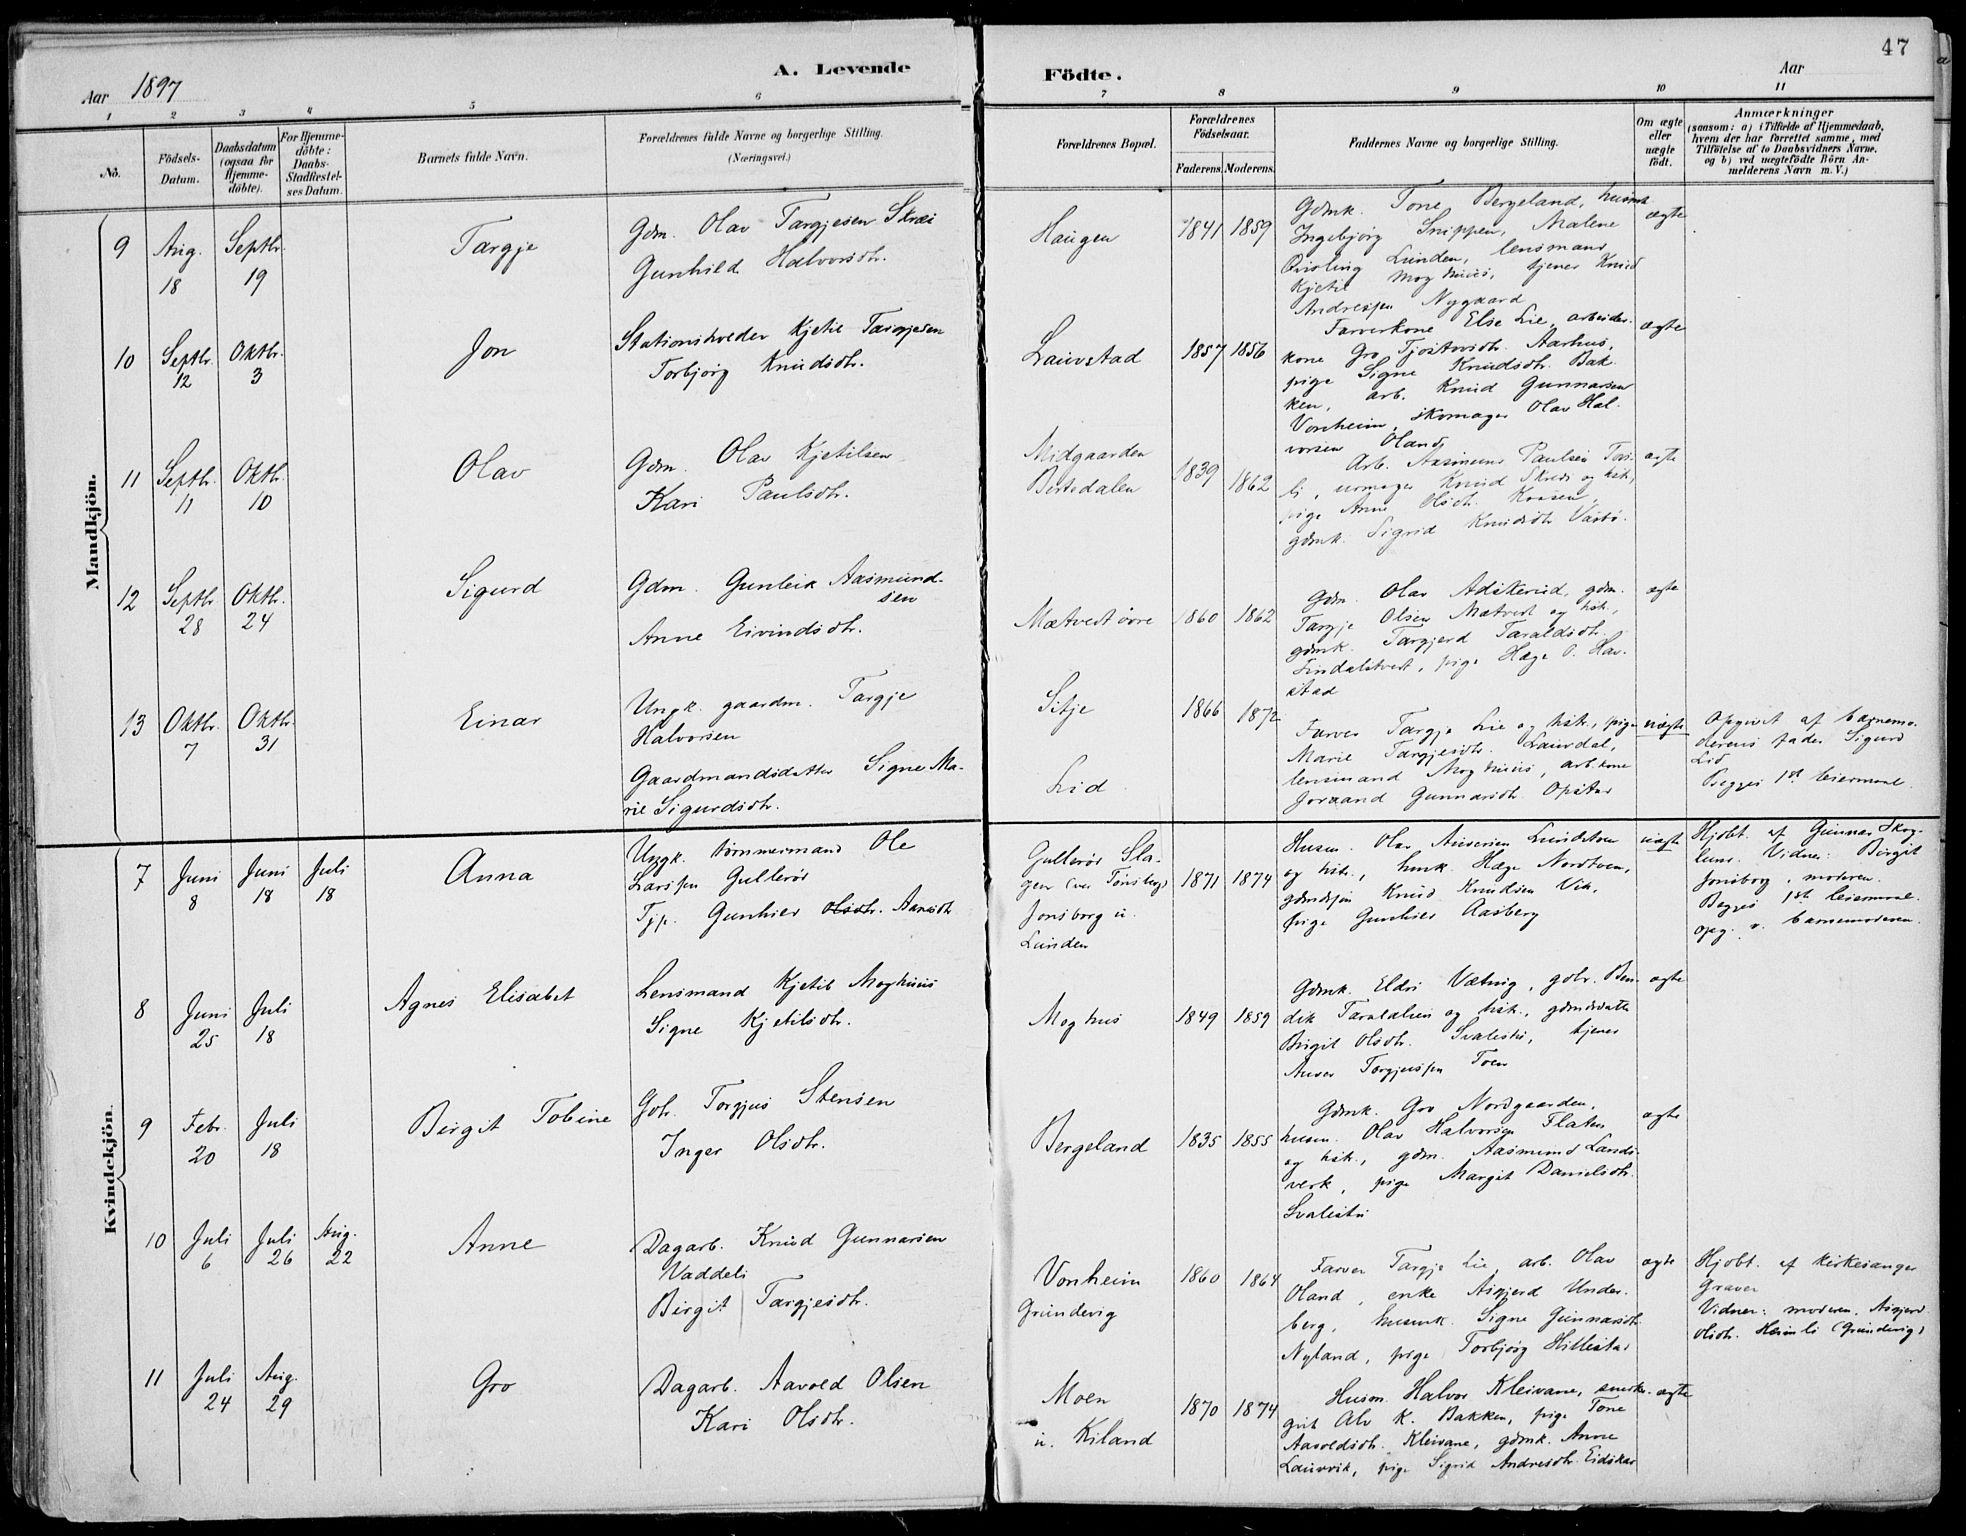 47
Aar 1897
A. Levende
Födte.
Aar
1 2 3 4 5 6 7 8 9 10 11
No.
Födsels-Datum.
Daabsdatum (ogsaa for Hjemme-döbte).
For Hjemme-döbte: Daabs-Stadfæstel-ses Datum.
Barnets fulde Navn.
Forældrenes fulde Navne og borgerlige Stilling.
(Næringsvei.)
Forældrenes Bopæl.
Forældrenes Födselsaar.
Faderens. Moderens.
Faddernes Navne og borgerlige Stilling.
Om ægte eller uægte födt.
Anmærkninger
(saasom: a) i Tilfælde af Hjemmedaab,
hvem der har forrettet samme, med
Tilföielse af to Daabsvidners Navne,
og b) ved uægtefödte Börn An-
melderens Navn m. V.)
Mandkjön.
9 Aug. 18 Septbr. 19 Targje
Gdm. Olav Targjesen
Gunhild Halvorsdtr.
Haugen 1841 1859
Gdmk. Tone Bergeland, husmk
Ingebjørg Snippen, Malene
Qvisling Lunden, lensmand
Kjetil Moghus, tjener Knud
Andresen Nygaard
ægte
10 Septbr. 12 Oktbr. 3 Jon
Stationsholder Kjetil Targjesen
Torbjørg Knudsdtr.
Lauvstad 1857 1856
Farverkone Else Lie, arbeider-
kone Gro Tjostovsdtr. Aarhus,
pige Signe Knudsdtr. Bak-
ken, arb. Knud Gunnarsen
Vonheim, skomager Olav Hal-
vorsen Oland
ægte
11 Septbr. 11 Oktbr. 10 Olav
Gdm. Olav Kjetilsen
Kari Paulsdtr.
Midgaarden
1839 1862
Arb. Aasmund Paulsen
urmager Knud
pige Anne Olsdtr.
gdmk. Sigrid Knudsdtr
ægte
12 Septbr. 28 Oktbr. 24 Sigurd
Gdm. Gunleik Aasmund-
sen
Anne Eivindsdtr.
Mætvedt øvre 1860 1862
Gdm. Olav Adskerud, gdm.
Targje Olsen Mætvedt og hst.,
gdmk. Targjerd Taraldsdtr.
pige Hæge O. Hav-
stad
ægte
13 Oktbr. 7 Oktbr. 31 Einar
Ungk. gaardm. Targje
Halvorsen
Gaardmandsdatter Signe Ma-
rie Sigurdsdtr.
Sitje
Lid
1866 1872
Farver Targje Lie og hst., pige
Marie Targjesdtr. Laurdal,
lensmand Moghus, arb.kone
Joraand Gunnarsdtr. Opstad
uægte
Opgivet af barnemo-
derens fader Sigurd
Lid
Begges 1st leiermaal.
Kvindekjön.
7 Juni 8 Juni 18 Juli 18 Anna
Ungk. tømmermand Ole
Larssen Gullerød
Tjp. Gunhild Olsdtr.
Gullerød Sla-
gen (ved Tønsberg)
Jonsborg u.
Lunden
1871 1874
Husm. Olav
og hst., husmk. Hæge Nordtveen,
gdmdssøn Knud Knudsen Vik,
pige Gunhild Aasberg
uægte
Hjdbt. af Gunnar Skog-
lund. Vidner: Birgit
Jonsborg, moderen.
Begges 1st leiermaal.
opg. v. barnemoderen.
8 Juni 25 Juli 18 Agnes Elisabet
Lensmand Kjetil Moghus
Signe Kjetilsdtr.
Moghus 1849 1859
Gdmk. Eldri Vætnig, gdbr. Ben-
dik Taraldsen og hst., gdmdsdatter
Birgit Olsdtr. Svalestu, tjener
Anders Torgjussen Toen
ægte
9 Febr. 20 Juli 18 Birgit Tobine
Gdr. Torgjus Stensen
Inger Olsdtr.
Bergeland 1835 1855
Gdmk. Gro Nordgaarden,
husm. Olav Halvorsen Flaten
og hst., gdm. Aasmund Lands-
verk, pige Margit Danielsdtr.
Svalestu
ægte
10 Juli 6 Juli 26 Aug. 22 Anne
Dagarb. Knud Gunnarsen
Vaddeli
Birgit Targjesdtr.
Vonheim
Grundevig
1860 1864
Farver Targje Lie, arb. Olav
Oland, enke Asgjerd Under-
berg, husmk. Signe Gunnarsdtr
Nyland, pige Torbjørg Hillestad
ægte
Hjdbt. af kirkesanger
Graver
Vidner: moderen, Asgjerd
Olsdtr. Heimli (Grundevig)
11 Juli 24 Aug. 29 Gro
Dagarb. Aavold Olsen
Kari Olsdtr.
Moen
u. Kiland
1870 1874
Husm. Halvor Kleivane,
Alv K. Bakken, pige Tone
Aavoldsdtr. Kleivane, gdmk. Anne
Lauvvik, pige Sigrid Andresdtr. Eidskar
ægte